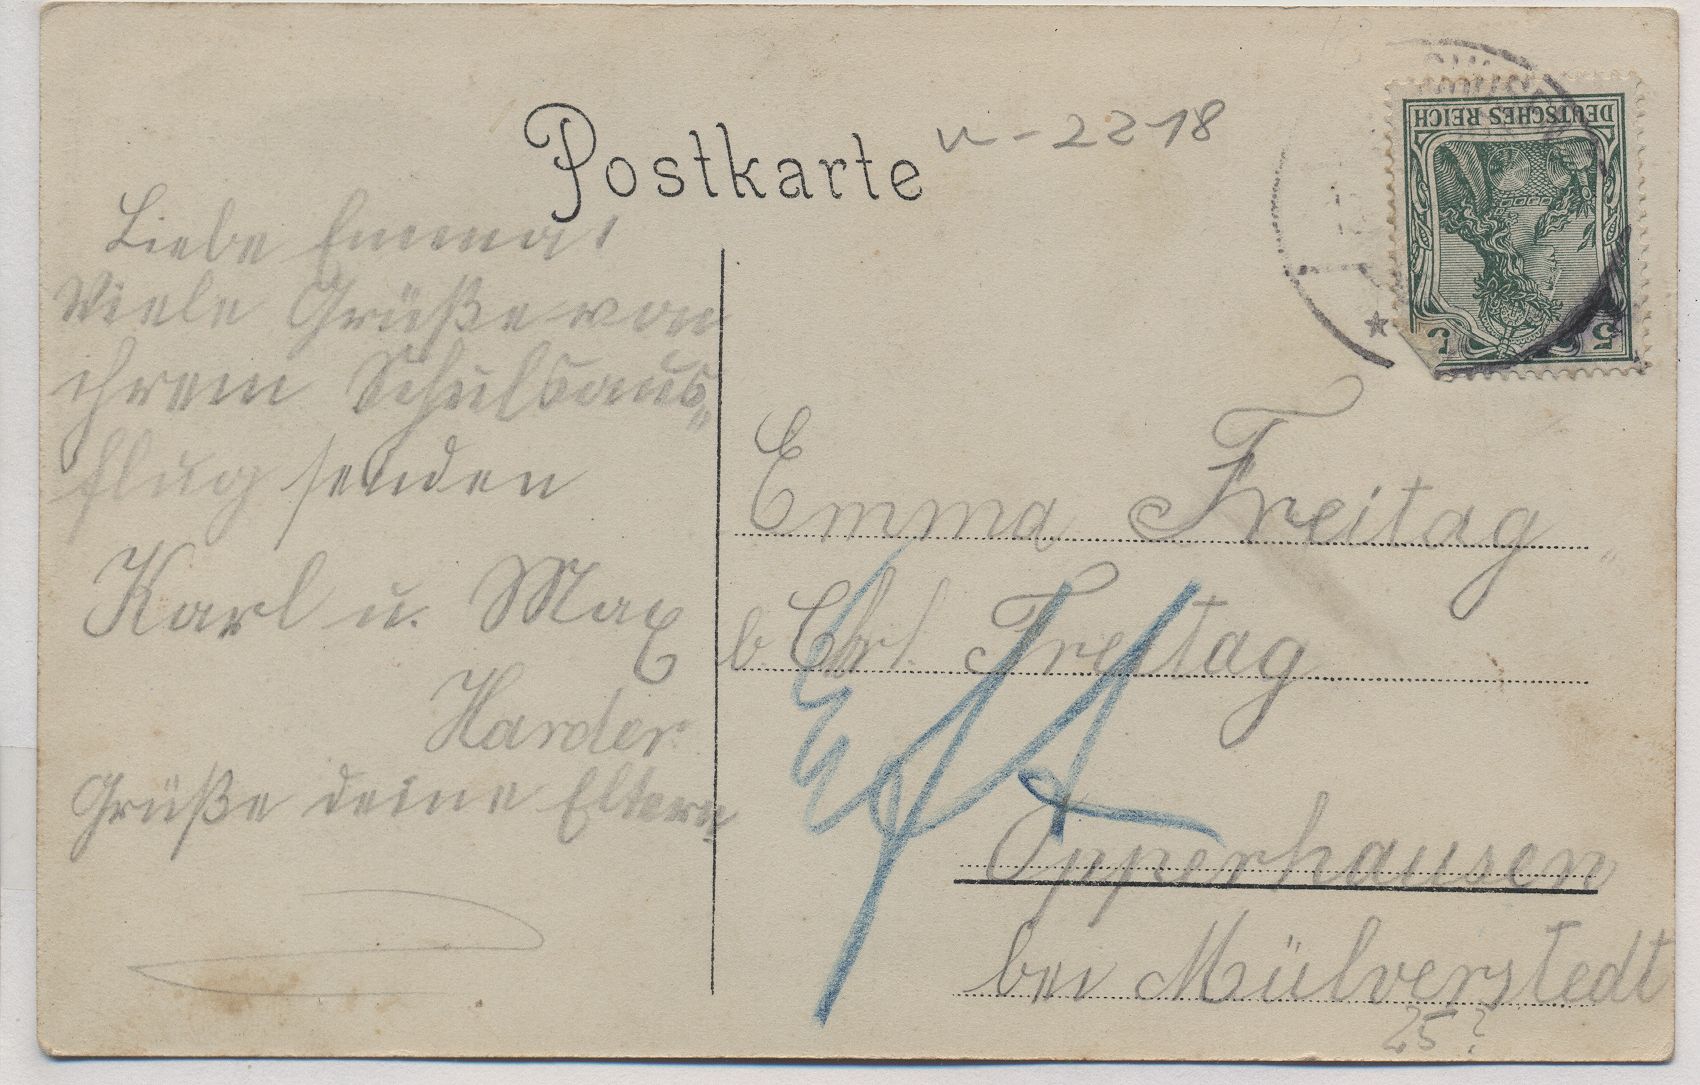 Postkarte
v-2218
DEUTSCHES REICH
5 5
Liebe Emma!
Viele Grüße von
ihrem Schulsaus„
flug senden
Karl u. Max
Harder
Grüße deine Eltern
Emma Freitag
b. Chr. Freitag
Oppershausen
bei Mülverstedt
25?